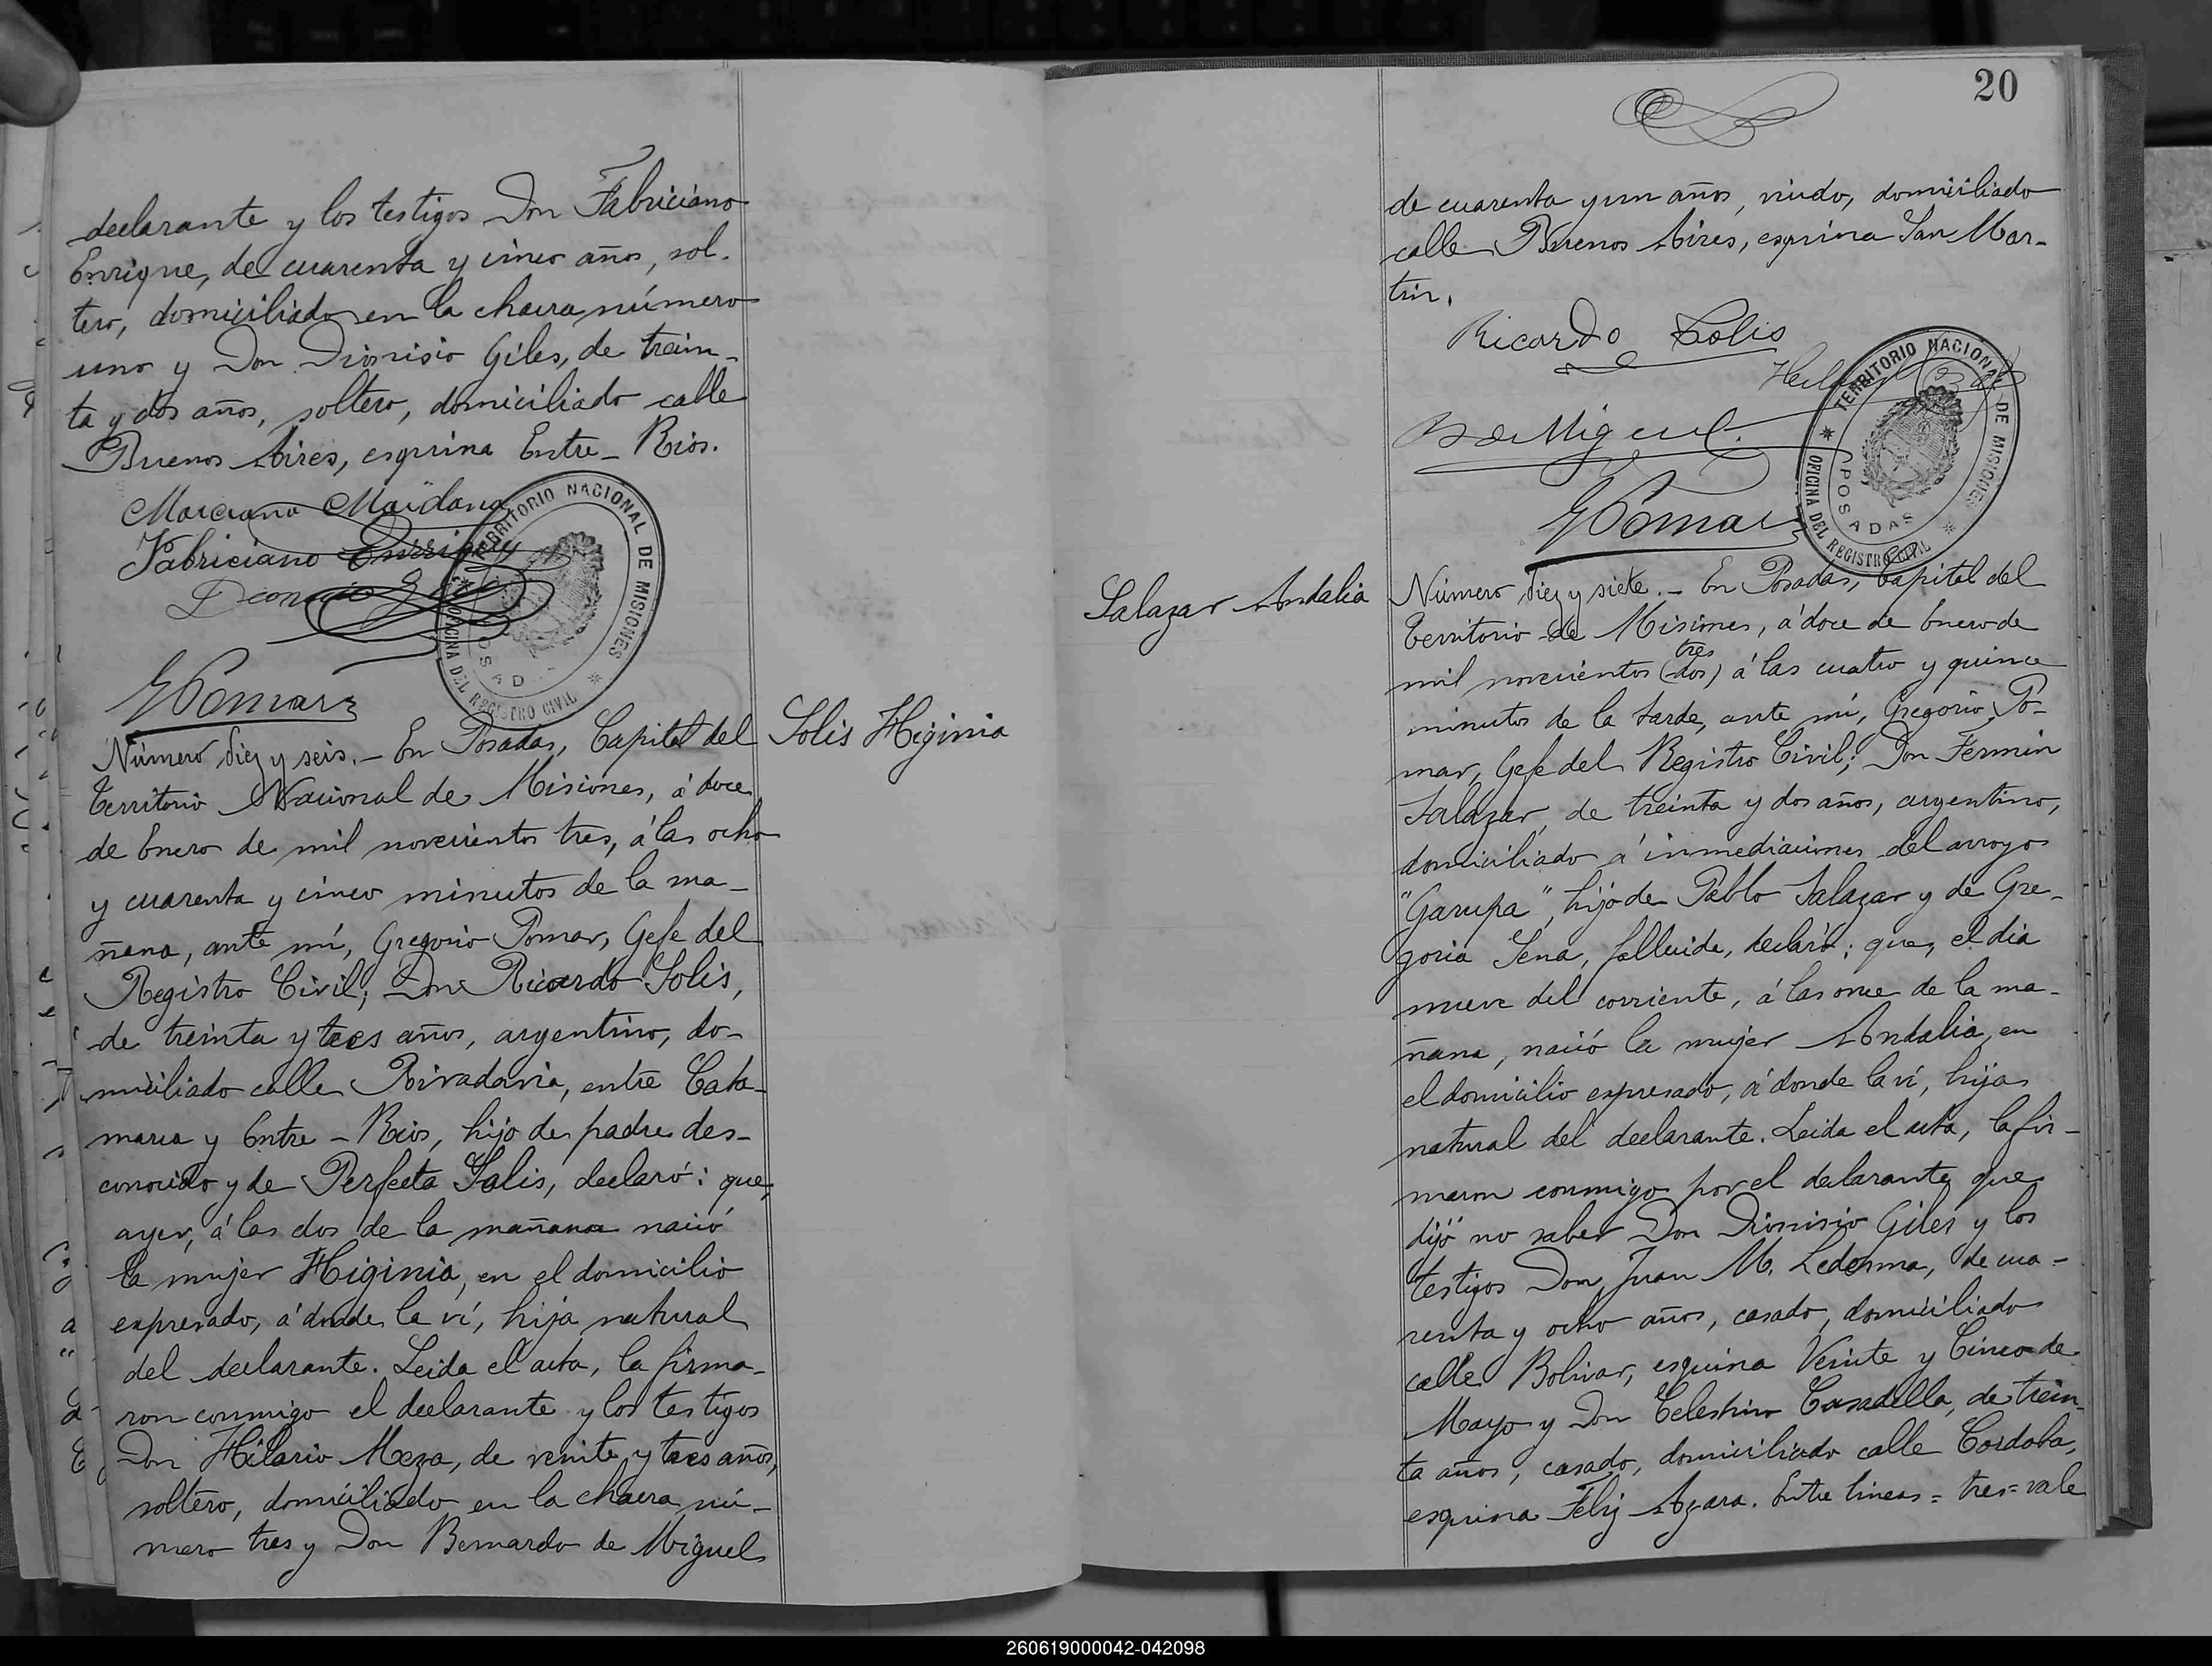 declarante y los testigos Don Fabriciano
Enrique, de cuarenta y cinco años, sol-
tero, domiciliado en la chacra número
uno y Don Dionisio Giles, de trein-
ta y dos años, soltero, domiciliado calle
Buenos Aires, esquina Entre-Rios.
Marciano Maidana
Fabriciano Enrique
TERRITORIO NACIONAL DE MISIONES
OFICINA DEL REGISTRO CIVIL
GPomar
Solis Higinia
Número diez y seis.- En Posadas, Capital del
Territorio Nacional de Misiones, á doce
de Enero de mil novecientos tres, á las ocho
y cuarenta y cinco minutos de la ma-
ñana, ante mí, Gregorio Pomar, Gefe del
Registro Civil; Don Ricardo Solis,
de treinta y tres años, argentino, do-
miciliado calle Rivadavia, entre Cata-
marca y Entre-Rios, hijo de padre des-
conocido y de Perfecta Solis, declaró: que,
ayer, á las dos de la mañana nació
la mujer Higinia, en el domicilio
expresado, á donde la ví, hija natural
del declarante. Leida el acta, la firma-
ron conmigo el declarante y los testigos
Don Hilario Meza, de veinte y tres años,
soltero, domiciliado en la chacra nú-
mero tres y Don Bernardo de Miguel
20
de cuarenta y un años, viudo, domiciliado
calle Buenos Aires, esquina San Mar-
tin.
Ricardo Solis
B de Miguel.
TERRITORIO NACIONAL DE MISIONES
POSADAS
OFICINA DEL REGISTRO CIVIL
GPomar
Salazar Andalia
Número diez y siete.- En Posadas, Capital del
Territorio de Misiones, á doce de Enero de
tres
mil novecientos (dos) á las cuatro y quince
minutos de la tarde, ante mí, Gregorio Po-
mar, Gefe del Registro Civil; Don Fermin
Salazar, de treinta y dos años, argentino,
domiciliado á inmediaciones del arroyo
"Garupa", hijo de Pablo Salazar y de Gre-
goria Sena, fallecida, declaró: que, el dia
nueve del corriente, á las once de la ma-
ñana, nació la mujer Andalia, en
el domicilio expresado, á donde la ví, hija
natural del declarante. Leida el acta, la fir-
maron conmigo por el declarante que
dijó no saber Don Dionisio Giles y los
testigos Don Juan M. Ledesma, de cua-
renta y ocho años, casado, domiciliado
calle Bolivar, esquina Veinte y Cinco de
Mayo y Don Celestino Casadella, de trein-
ta años, casado, domiciliado calle Cordoba,
esquina Feliz Azara. Entre lineas = tres = vale
260619000042-042098